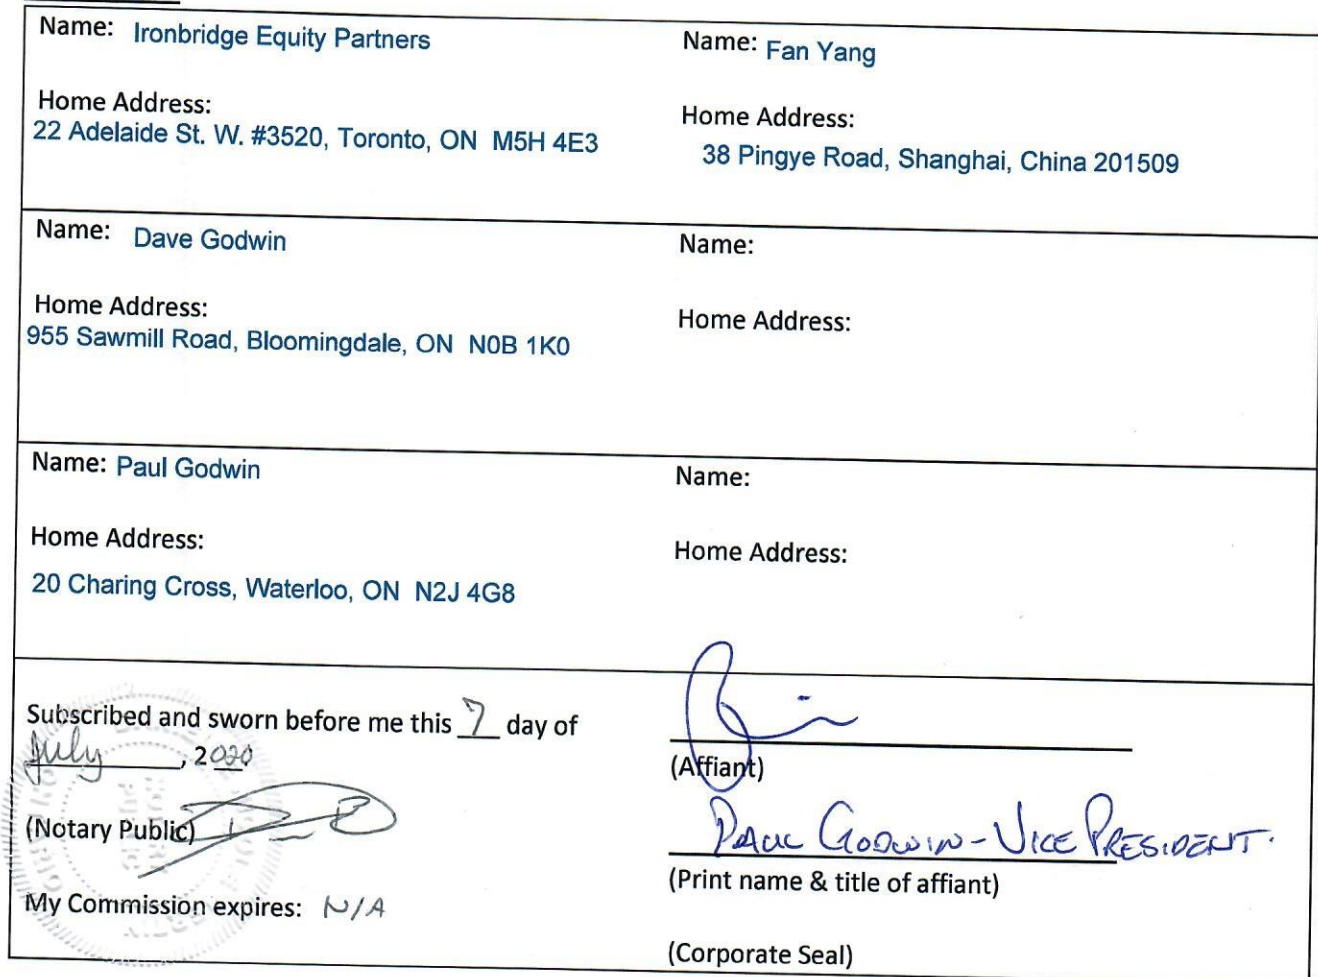 Name: Ironbridge Equity Partners
Home Address:
22 Adelaide St. W. #3520, Toronto, ON M5H 4E3
Name: Fan Yang
Home Address:
38 Pingye Road, Shanghai, China 201509
Name: Dave Godwin
Home Address:
955 Sawmill Road, Bloomingdale, ON N0B 1K0
Name:
Home Address:
Name: Paul Godwin
Home Address:
20 Charing Cross, Waterloo, ON N2J 4G8
Name:
Home Address:
Subscribed and sworn before me this 7 day of
July, 2020
(Notary Public)
My Commission expires: N/A
(Affiant)
PAUL GODWIN - VICE PRESIDENT.
(Print name & title of affiant)
(Corporate Seal)